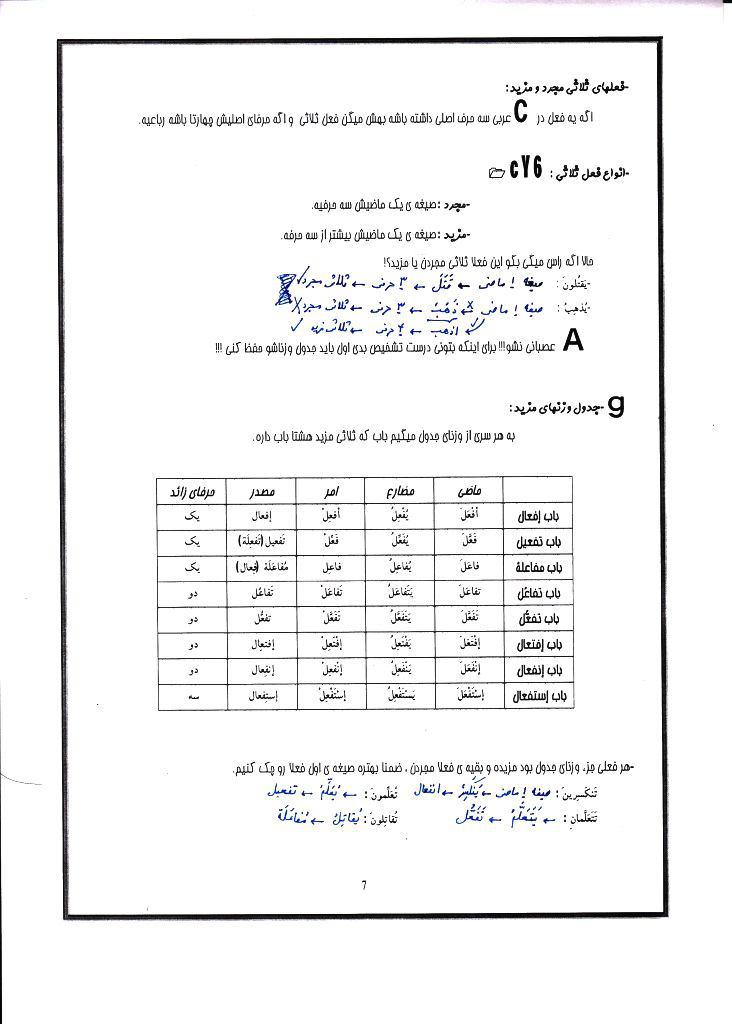 -فعلهای ثلاثی مجرد و مزید:
اگه یه فعل در C عربی سه حرف اصلی داشته باشه بهش میگن فعل ثلاثی و اگه حرفای اصلیش چهارتا باشه رباعیه.
-انواع فعل ثلاثی : cY6
-مجرد :صیغه ی یک ماضیش سه حرفیه.
-مزید :صیغه ی یک ماضیش بیشتر از سه حرفه.
حالا اگه راس میگی بگو این فعلا ثلاثی مجردن یا مزید؟!
-یَقتُلونَ: صیغه ۱ ماضی ← قَتَلَ ← ۳ حرف ← ثلاثی مجرد ✓
-یُذهِبُ: صیغه ۱ ماضی ← ذَهَبَ ← ۳ حرف ← ثلاثی مجرد ✗
اذهب ← ۴ حرف ← ثلاثی مزید ✓
A عصبانی نشو!!! برای اینکه بتونی درست تشخیص بدی اول باید جدول وزناشو حفظ کنی !!!
g -جدول وزنهای مزید:
به هر سری از وزنای جدول میگیم باب که ثلاثی مزید هشتا باب داره.
ماضی مضارع امر مصدر حرفای زائد
باب إفعال أفْعَلَ یُفْعِلُ أفعِلْ إفعال یک
باب تفعیل فَعَّلَ یُفَعِّلُ فَعِّلْ تَفعیل (تَفعِلَة) یک
باب مفاعلة فاعَلَ یُفاعِلُ فاعِل مُفاعَلَة (فِعال) یک
باب تفاعُل تفاعَلَ یَتَفاعَلُ تَفاعَلْ تَفاعُل دو
باب تفعُّل تَفَعَّلَ یَتَفَعَّلُ تَفَعَّلْ تفعُّل دو
باب إفتعال إفْتَعَلَ یَفْتَعِلُ إفْتَعِلْ إفتعال دو
باب إنفعال إنْفَعَلَ یَنْفَعِلُ إنْفَعِلْ إنفِعال دو
باب إستفعال إسْتَفْعَلَ یَسْتَفْعِلُ إسْتَفْعِلْ إستِفعال سه
-هر فعلی جزء وزنای جدول بود مزیده و بقیه ی فعلا مجردن ، ضمنا بهتره صیغه ی اول فعلا رو چک کنیم.
تَنکَسِرینَ: صیغه ۱ ماضی ← یَنْکَسِرُ ← انفعال تُعَلِّمونَ: ← یُعَلِّمُ ← تفعیل
تَتَعَلَّمانِ: ← یَتَعَلَّمُ ← تَفَعُّل تُقاتِلونَ: یُقاتِلُ ← مُفاعَلَة
7